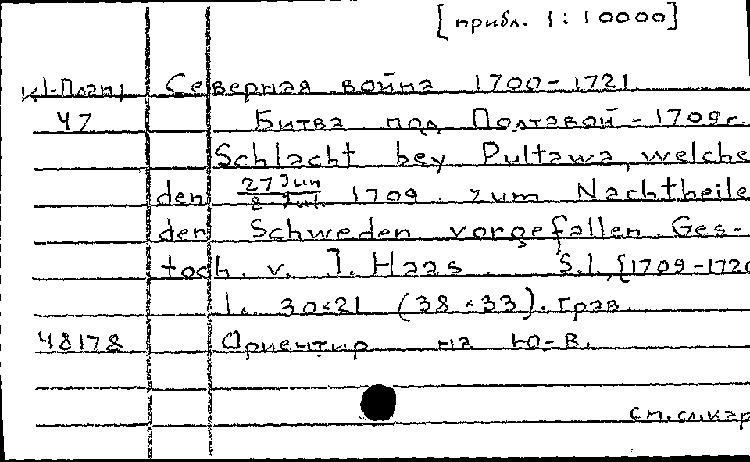 [прибл. 1:10000]
К1-План1 Северная война 1700-1721
47 Битва под Полтавой - 1709 г.
Schlacht bey Pultawa, welche
den 27 Jun / 8 Jul. 1709. zum Nachtheile
der Schweden vorgefallen. Ges-
toch. v. J. Haas. S.l. [1709-1720
1. 30×21 (38×33). грав.
48178 Ориентир. на Ю-В.
см. сл. кар